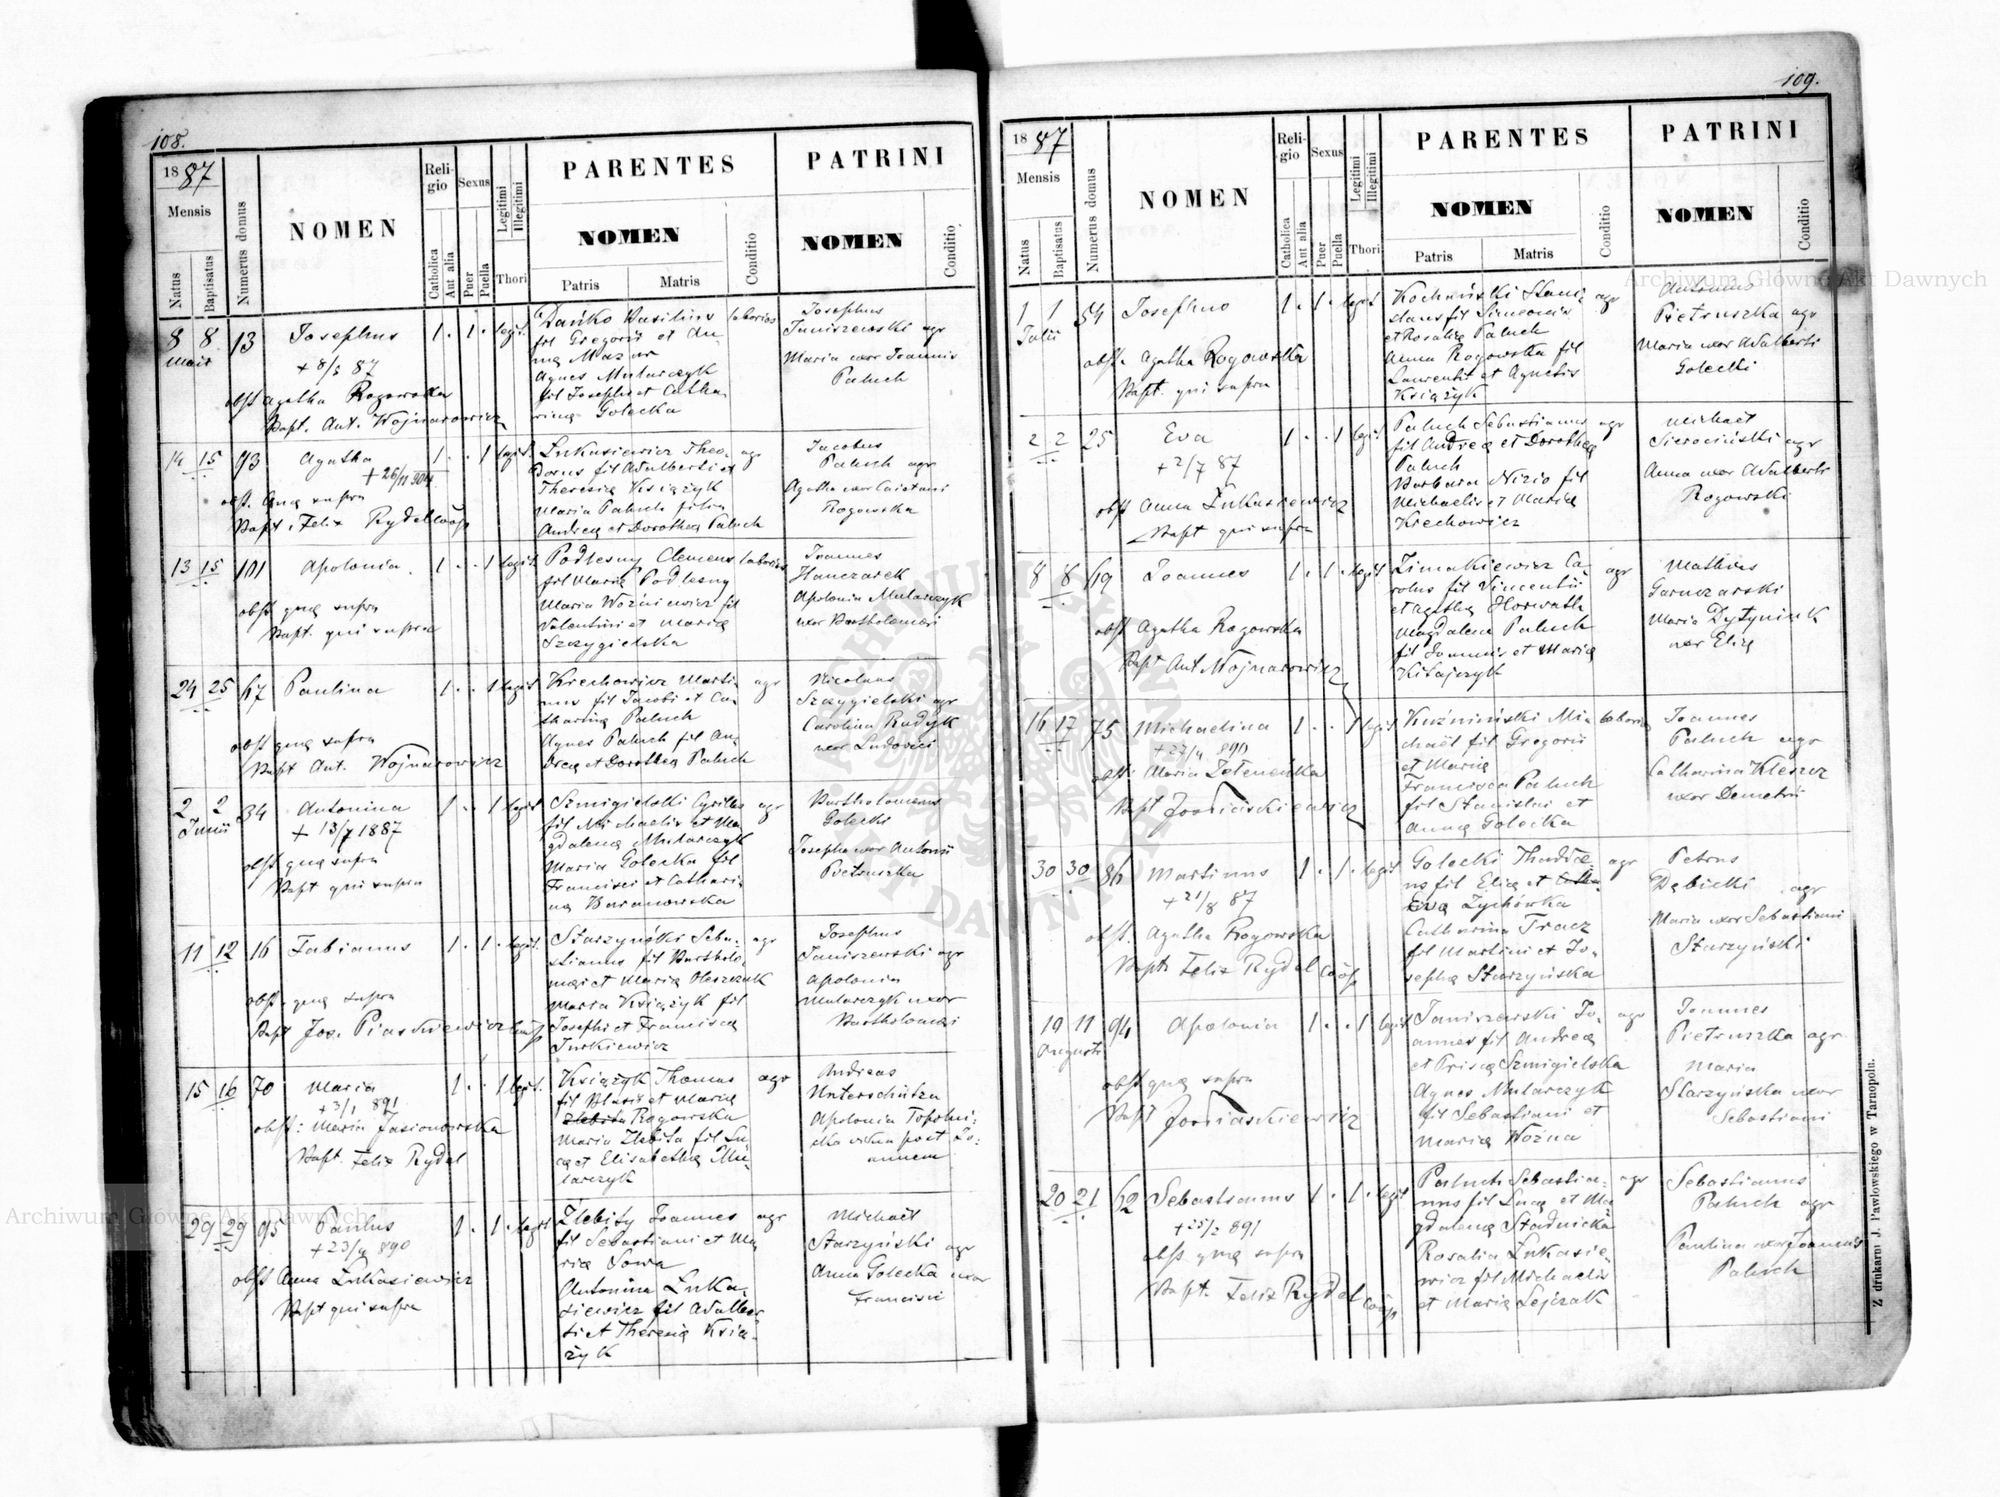 108.
18 87
Mensis
Natus
Baptisatus
Numerus domus
NOMEN
Religio
Catholica
Aut alia
Sexus
Puer
Puella
Legitimi
Illegitimi
Thori
PARENTES
NOMEN
Patris
Matris
Conditio
PATRINI
NOMEN
Conditio
8 8 13 Josephus 1 . 1 . legit.
Maii
+ 8/5 87
obst Agatha Rogowska
Bapt. Ant. Wojnarowicz
Dańko Basilius laborios
fil Gregorii et An-
na Mazur
Agnes Mularczyk
fil Josephi et Catha-
rina Golecka
Josephus
Janiszewski agr
Maria uxor Joannis
Paluch
14 15 93 Agatha 1 . . 1 legit.
+ 26/11 904
obst. Qua supra
Bapt. Felix Rydel Coop
Lukasiewicz Theo- agr
dorus fil Adalberti et
Theresia Książyk
Maria Paluch filia
Andrea et Dorothea Paluch
Jacobus
Paluch agr
Agatha uxor Caietani
Rogowska
13 15 101 Apolonia 1 . . 1 legit.
obst qua supra
Bapt. qui supra
Podlesny Clemens laborios
fil Maria Podlesny
Maria Woźniewicz fil
Valentini et Maria
Szczygielska
Joannes
Hanczarek
Apolonia Mularczyk
uxor Bartholomaei
24 25 67 Paulina 1 . . 1 legit
obst qua supra
Bapt Ant. Wojnarowicz
Krechowicz Marti- agr
nus fil Jacobi et Ca-
tharina Paluch
Agnes Paluch fil An-
drea et Dorothea Paluch
Nicolaus
Szczygielski agr
Carolina Rudyk
uxor Ludovici
2 2 34 Antonina 1 . . 1 legit
Junii
+ 13/7 1887
obst qua supra
Bapt qui supra
Szmigielski Cyrillus agr
fil Michaelis et Ma-
gdalena Mularczyk
Maria Golecka fil
Francisci et Cathari-
na Baranowska
Bartholomeus
Golecki
Josepha uxor Antonii
Pietruszka
11 12 16 Fabianus 1 . 1 . legit.
obst. qua supra
Bapt Jos. Piaskiewicz Coop
Starzyński Seba- agr
stianus fil Bartholo-
maei et Maria Oleszczuk
Maria Książyk fil
Josephi et Francisca
Jurkiewicz
Josephus
Janiszewski agr
Apolonia
Mularczyk uxor
Bartholomaei
15 16 70 Maria 1 . . 1 legit.
+ 3/1 891
obst: Maria Jasionowska
Bapt. Felix Rydel
Książyk Thomas agr
fil Blasii et Maria
Zlebita Rogowska
Maria Zlebita fil Lu-
ca et Elisabetha Mu-
larczyk
Andreas
Unterschütza
Apolonia Topolni-
cka vidua post Jo-
annem
29 29 95 Paulus 1 . 1 . legit
+ 23/4 890
obst Anna Lukasiewicz
Bapt qui supra
Zlebity Joannes agr
fil Sebastiani et Ma-
ria Sowa
Antonina Luka-
siewicz fil Adalber-
ti et Theresia Ksią-
żyk
Michael
Starzyński agr
Anna Golecka uxor
Francisci
109.
18 87
Mensis
Natus
Baptisatus
Numerus domus
NOMEN
Religio
Catholica
Aut alia
Sexus
Puer
Puella
Legitimi
Illegitimi
Thori
PARENTES
NOMEN
Patris
Matris
Conditio
PATRINI
NOMEN
Conditio
1 1 54 Josephus 1 . 1 . legit
Julii
obst. Agatha Rogowska
Bapt. qui supra
Kochański Stani- agr
slaus fil Simeonis
et Rosalia Paluch
Anna Rogowska fil
Laurentii et Agnetis
Książyk
Antonius
Pietruszka agr
Maria uxor Adalberti
Golecki
2 2 25 Eva 1 . . 1 legit
+ 2/7 87
obst Anna Lukasiewicz
Bapt qui supra
Paluch Sebastianus agr
fil Andrea et Dorothea
Paluch
Barbara Nizio fil
Michaelis et Maria
Krechowicz
Michael
Sierociński agr
Anna uxor Adalberti
Rogowski
8 8 69 Joannes 1 . 1 . legit
obst Agatha Rogowska
Bapt Ant Wojnarowicz
Zimakiewicz Ca- agr
rolus fil Vincentii
et Agatha Horwath
Magdalena Paluch
fil Joannis et Maria
Kitajczyk
Mathias
Garnczarski
Maria Dytyniuk
uxor Elia
16 17 75 Michaelina 1 . . 1 legit
+ 27/4 890
obst. Maria
Bapt
Kuźmiński Mi- laborios
chaël fil Gregorii
et Maria
Francisca Paluch
fil Stanislai et
Anna Golecka
Joannes
Paluch agr
Catharina Kleszcz
uxor Demetrii
30 30 86 Martinus 1 . 1 . legit
+ 21/8 87
obst. Agatha Rogowska
Bapt. Felix Rydel Coop
Golecki Thaddae- agr
us fil Elia et
Eva Zychówka
Catharina Tracz
fil Martini et Jo-
sepha Starzyńska
Petrus
Dębicki agr
Maria uxor Sebastiani
Starzyński
10 11 94 Apolonia 1 . . 1 legit
Augusti
obst qua supra
Bapt
Janiszewski Jo- agr
annes fil Andrea
et Prisca Szmigielska
Agnes Mularczyk
fil Sebastiani et
Maria Woźna
Joannes
Pietruszka agr
Maria
Starzyńska uxor
Sebastiani
20 21 62 Sebastianus 1 . 1 . legit
+ 25/2 891
obst qua supra
Bapt. Felix Rydel Coop
Paluch Sebastia- agr
nus fil Luca et Ma-
gdalena Stadnicka
Rosalia Lukasie-
wicz fil Michaelis
et Maria Lejczak
Sebastianus
Paluch agr
Paulina uxor Joannis
Paluch
Z drukarni J. Pawłowskiego w Tarnopolu.
Archiwum Główne Akt Dawnych
Archiwum Główne Akt Dawnych
ARCHIWUM GŁÓWNE AKT DAWNYCH